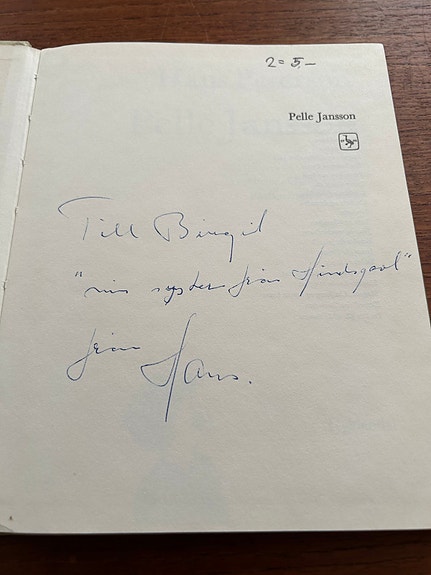 2 = 5,-
Pelle Jansson
Till Birgit
"min syster från Hindsgavl"
från
Hans.